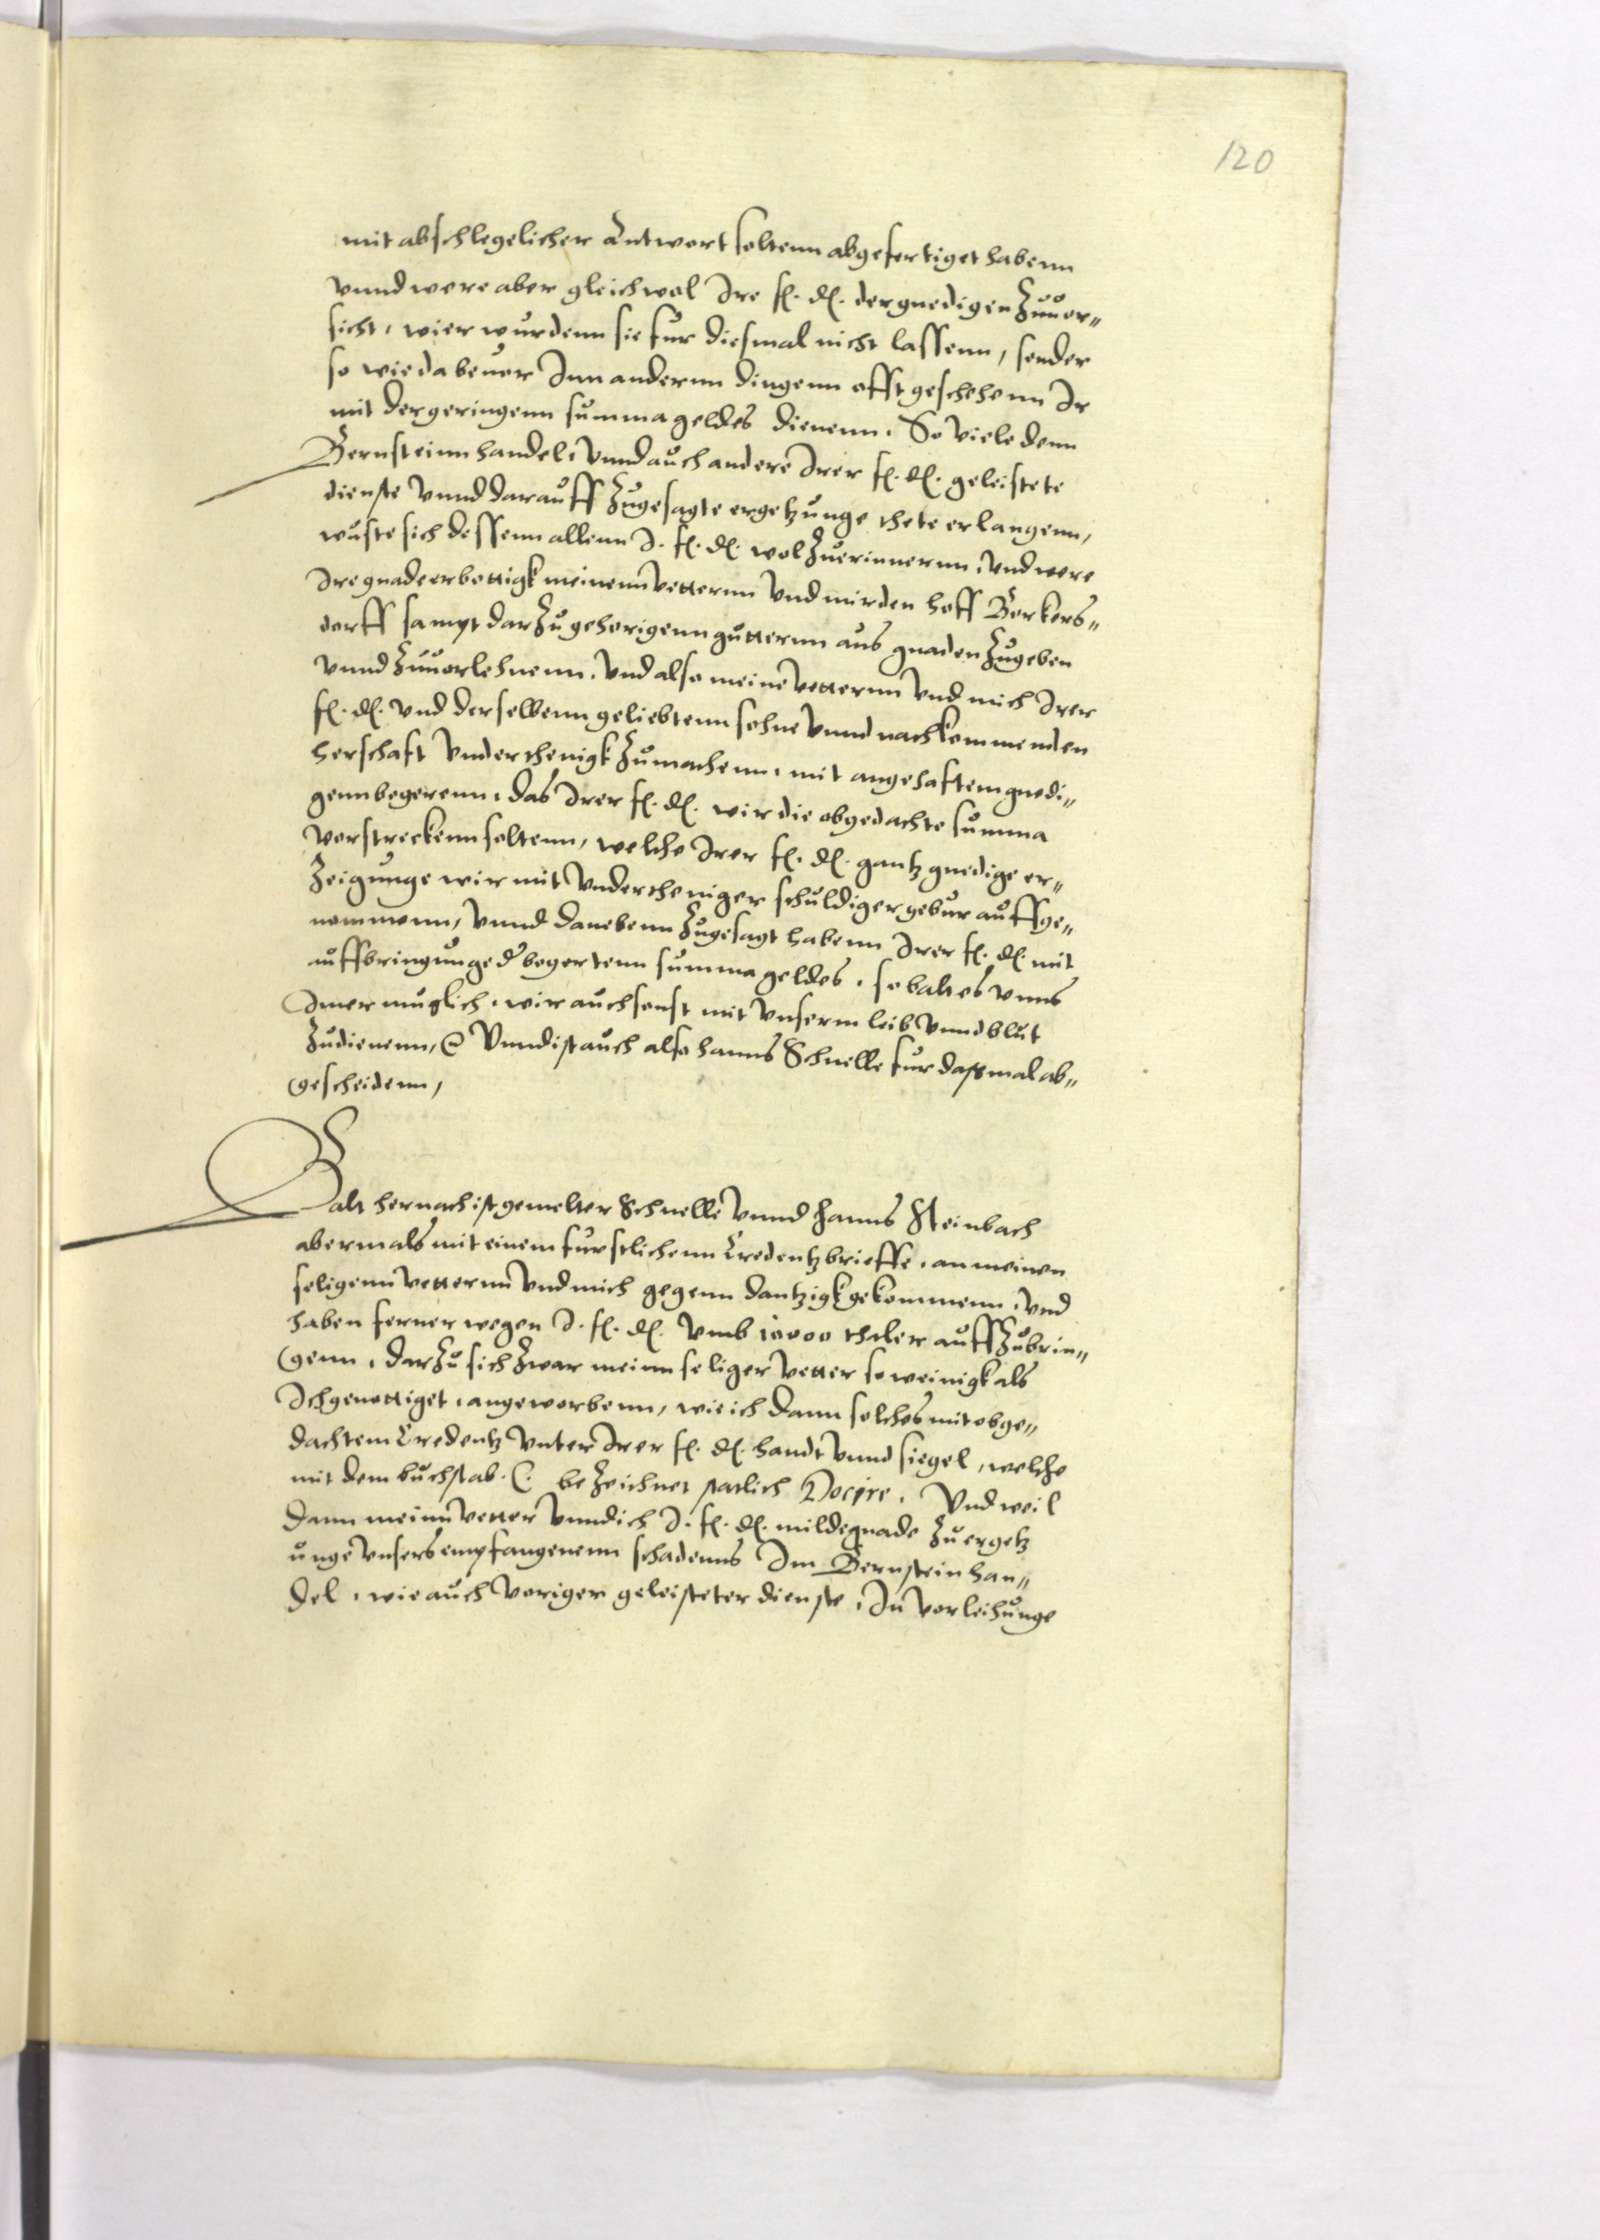 120
mit abschlegelicher Antwort soltenn abgefertiget habenn
vnnd were aber gleichwol Ire f. d. der gnedigen Zuuer„
sicht, wier wurdenn sie fur diesmal nicht lassenn, sonder
so wie da beuor Inn andernn dingenn offt geschehenn Ir
mit der geringenn summa geldes dienenn. So viele denn
Bernsteinn handel, vnnd auch andere Irer f. d. geleistete
dienste vnnd darauff Zugesagte ergetzunge thete erlangenn,
wuste sich dessenn allenn I. f. d. wol Zuerinnernn, vnd were
Ire gnade erbottigk meinenn vetternn vnd mir den hoff Borkers„
dorff sampt darzu gehorigenn gutternn aus gnaden Zugeben
vnnd Zuuorlehnenn, vnd also meine vetternn vnd mich Irer
f. d. vnd derselbenn geliebtenn sohne vnnd nachkommenden
herschaft vnderthenigk Zumachenn, mit angehaftem gnedi„
genn begerenn, das Irer f. d. wir die obgedachte summa
vorstreckenn soltenn, welche Irer f. d. gantz gnedige er„
Zeigunge wir mit vndertheniger schuldiger gebur auffge„
nommenn, vnnd danebenn Zugesagt habenn Irer f. d. mit
auffbringunge d begertenn summa geldes, so balt es vnns
Imer muglich, wir auch sonst mit vnserm leib vnnd blut
Zudienenn, Vnnd ist auch also hanns Schnelle fur dasmal ab„
gescheidenn,
Balt hernach ist gemelter Schnelle vnnd Hanns Steinbach
abermals mit einem furstlichenn Credentzbrieffe, an meinen
seligenn vetternn vnd mich gegenn dantzigk gekommenn, vnd
haben ferner wegen I. f. d. vmb 10000 thaler auffzubrin„
genn, darzu sich zwar meinn seliger vetter so weinigk als
Ich genottiget, angeworbenn, wie ich dann solches mit obge„
dachtem Credentz vnter Irer f. d. handt vnnd siegel, welche
mit dem buchstab. C. bezeichnet statlich Docire. Vnd weil
dann meinn vetter vnnd ich I. f. d. milde gnade Zu ergetz
unge vnsers empfangenenn schadenns Im Bernstein han„
del, wie auch voriger geleisteter dienste, In vorleihunge